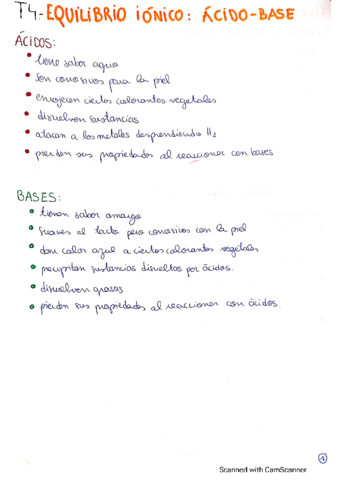 T4-EQUILIBRIO IÓNICO: ÁCIDO-BASE
ÁCIDOS:
• tiene sabor agrio
• son corrosivos para la piel
• enrojecen ciertos colorantes vegetales
• disuelven sustancias
• atacan a los metales desprendiendo H₂
• pierden sus propiedades al reaccionar con bases
BASES:
• tienen sabor amargo
• suaves al tacto pero corrosivos con la piel
• dan color azul a ciertos colorantes vegetales
• precipitan sustancias disueltas por ácidos.
• disuelven grasas
• pierden sus propiedades al reaccionar con ácidos.
1
Scanned with CamScanner